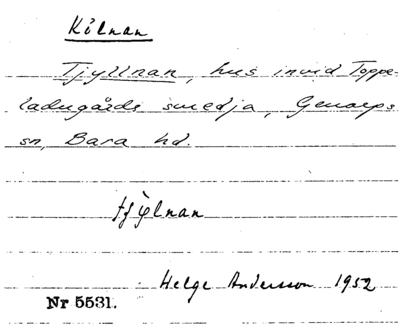 Kölnan
Tjyllnan, hus invid Toppe-
ladugårds smedja, Genarps
sn, Bara hd.
Helge Andersson 1952
Nr 5531.